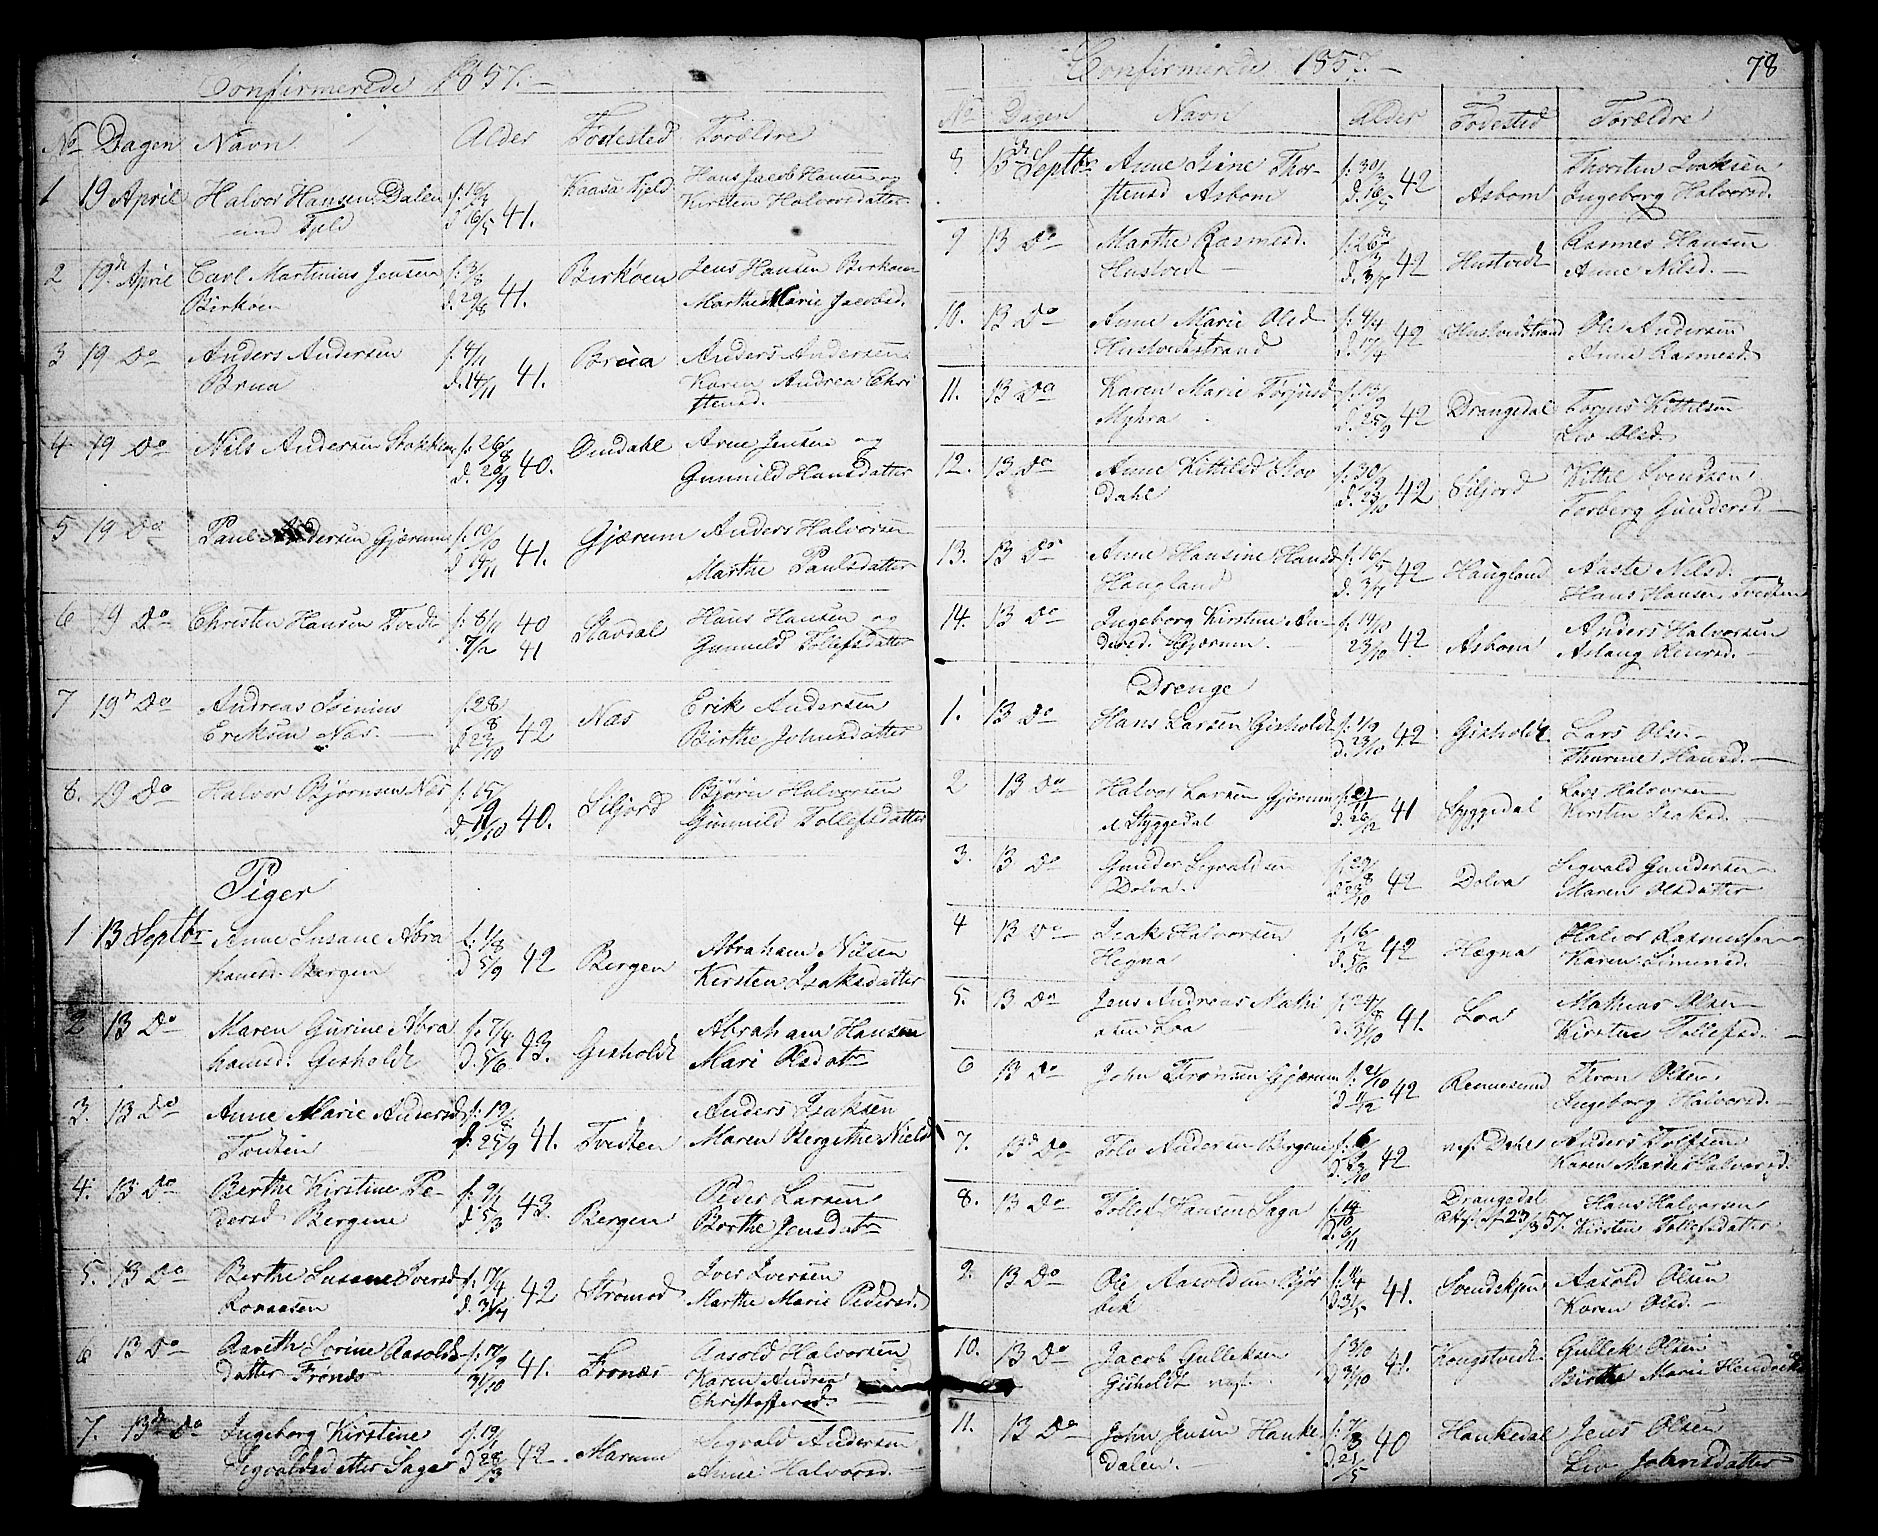 Confirmerede 1857.-
No Dagen Navn Alder Fødested Forældre
1 19 April Halvor Hansen Dalen f. 41. Kaasa Fjeld Hans Jacob Hansen og
und Fjeld d. 16/5 Kirsten Halvorsdatter
2 19de April Carl Martinius Jensen f. 3/8 41. Birkøen Jens Hansen Birkøen
Birkøen d. 29/8 Marthe Marie Jacobsd.
3 19 Do Anders Andersen f. 4/11 41. Brua Anders Andersen
Brua d. 14/11 Karen Andrea Chri
stensd.
4 19 Do Nils Andersen Stokken f. 26/8 40. Omdahl Arne Jensen og
d. 20/9 Gunnild Hansdatter
5 19 Do Paul Andersen Gjærum f. 10/10 41. Gjærum Anders Halvorsen
d. 14/11 Marthe Paulsdatter
6 19 Do Christen Hansen Tvedt f. 8/11 40 Stavdal Hans Hansen og
7/2 41 Gunnild Tollefsdatter
7 19de Do Andreas Isinius f. 28/8 42 Næs Erik Andersen
Eriksen Næs. d. 23/10 Birthe Johnsdatter
8. 19 Do Halvor Bjørnsen Næs f. 15/9 40. Siljord Bjørn Halvorsen
d. 11/10 Gunnild Tollefsdatter
Piger
1 13 Septbr Anne Susane Abra f. 1/8 42 Bergen Abraham Nilsen
hamsd. Bergen d. 5/9 Kirsten Isaksdatter
2 13 Do Maren Gurine Abra f. 7/4 43. Gisholdt Abraham Hansen
hamsd. Gisholdt d. 5/6 Mari Olsdatr
3. 13 Do Anne Marie Andersd f. 19/8 41. Tvedten Anders Isaksen
Tvedten d. 25/9 Maren Bergithe Nielsd
4. 13 Do Berthe Kirstine Pe- f. 9/1 43 Bergen Peder Larsen
dersd Bergene d. 5/3 Berthe Jensdatr
5. 13 Do Berthe Susane Iversd f. 17/4 42 Strømod Iver Iversen
Rønaasen d. 31/7 Marthe Marie Pedersd.
6 13 Do Aareth Sorine Aasolds- f. 17/9 41. Frønæs Aasold Halvorsen
datter Frønæs 31/10 Karen Andrea
Christoffersd.
7. 13de Do Ingeborg Kirstine f. 19/1 42 Marum Sigvald Andersen
Sigvaldsdatter Saga d. 28/3 Anne Halvorsd.-
Confirmerede 1857.- 78
No Dagen Navn Alder Fødested Forældre
8 13de Septbr Anne Isine Thor- f. 30/3 42 Asbom Thorsten Isaksen
stensd Asbom d. 16/5 Ingeborg Halvorsd.
9 13 Do Marthe Rasmesd. f. 26/3 42 Hustvedt Rasmes Hansen
Hustvedt d. 3/7 Anne Nilsd.-
10. 13 Do Anne Marie Olsd f. 4/4 42 Hustvedtstrand Ole Andersen
Hustvedtstrand d. 17/4 Anne Rasmesd.
11. 13 Do Karen Marie Torjusd f. 13/9 42 Drangedal Torjus Kittilsen
Myhra d. 25/9 Liv Olsd.
12. 13 Do Anne Kittilsd Stov f. 30/9 42 Siljord Kittil Svendsen
dahl d. 23/10 Torberg Gundersd.
13. 13 Do Anne Hansine Hansd f. 16/5 42 Haugland Aaste Nilsd.
Haugland d. 3/7 Hans Hansen, Tvedten
14. 13 Do Ingeborg Kirstine An- f. 42. Asbom Anders Halvorsen
dersd. Gjærum. 23/10 Aslaug Einersd.-
Drenge
1. 13 Do Hans Larsen Gisholdt f. 1/9 42 Gisholdt Lars Olsen
d. 23/10 Thurine Hansd.-
2 13 Do Halvor Larsen Gjærum f. 21/11 41 Styggedal Lars Halvorsen
Styggedal d. 26/12 Kirsten Isaksd.-
3. 13 Do Gunder Sigvaldsen f. 29/8 42 Dolva Sigvald Gundersen
Dolva. d. 23/10 Maren Olsdatter
4 13 Do Isak Halvorsen f. 16/2 42 Hægna Halvor Rasmussen
Hegna d. 5/6 Karen Simensd.
5. 13 Do Jens Andreas Mathi f. 24/8 41. Loa Mathias Olsen
asen Loa d. 31/10 Kirstine Tollefsd.-
6 13 Do John Tronsen Gjærum f. 21/10 42 Rennesund Tron Olsen
d. 11/12 Ingeborg Halvorsd.-
7. 13de Do Tolv Andersen Bergene f. 6/ 42 Dahl Anders Tolfsen
d. 23/10 Karen Marthe Halvorsd.
8. 13 Do Tollef Hansen Saga f. 14/10 Drangedal Hans Halvorsen
d. 6/11 Att. 23/8 57. Kirsten Tollefsdatter
9. 13 Do Ole Aasoldsen Bjør f. 11/4 41. Svendskjen Aasold Olsen
bek d. 31/5 Karen Olsd.-
10. 13 Do Jacob Gulleksen 3/10 41. Kongstvedt Gullek Olsen
Gisholdt d. 31/10 Birthe Marie Hendriksd
11. 13 Do John Jensen Hanke f. 7/3 40 Hankedal Jens Olsen
Dalen. d. 21/5 Liv Johnsdatter